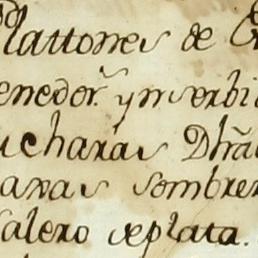 Plattones de
enedor. ynserbi
ucharas Dhã
aras sombrer
salero seplata.